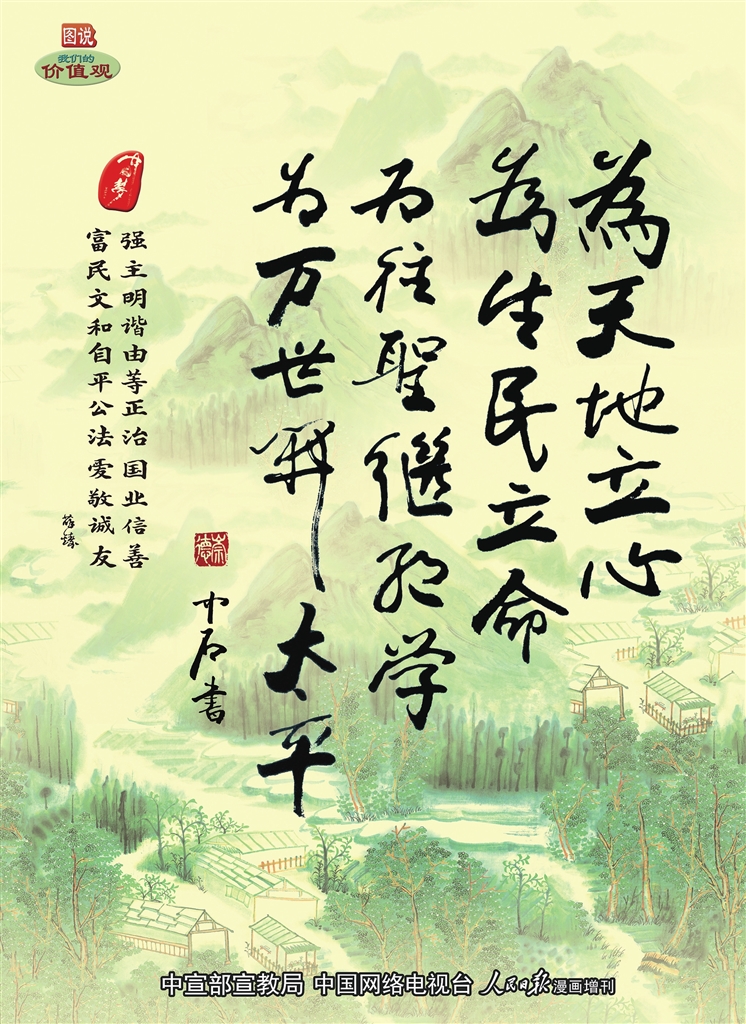 图说
我们的
价值观
為天地立心
為生民立命
为往聖繼绝学
为万世开太平
中石書
崇德
中国梦
富强
民主
文明
和谐
自由
平等
公正
法治
爱国
敬业
诚信
友善
中宣部宣教局 中国网络电视台 人民日报漫画增刊